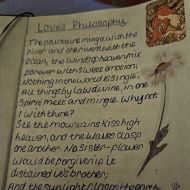 Love's Philosophy
The fountains mingle with the
river and the rivers with the
ocean, the winds of heaven mix
forever with sweet emotion;
Nothing in the world is single;
All things by law divine, in one
Spirit meet and mingle. Why not
I with thine?
See the mountains kiss high
heaven, and the waves clasp
one another. No sister-flower
would be forgiven if it
disdained its brother;
And the sunlight clasps the earth